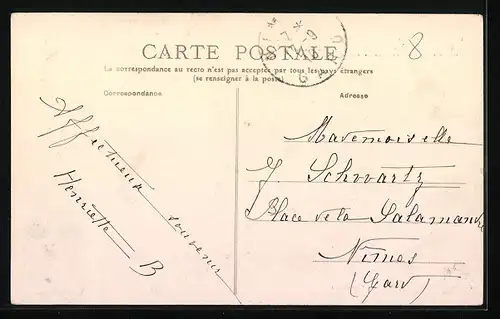 8
CARTE POSTALE
La correspondance au recto n'est pas acceptée par tous les pays étrangers
(se renseigner à la poste)
Correspondance
Adresse
Affectueux souvenir
Henriette B
Mademoiselle
J. Schwartz
Place de la Salamandre
Nimes
(Gard)